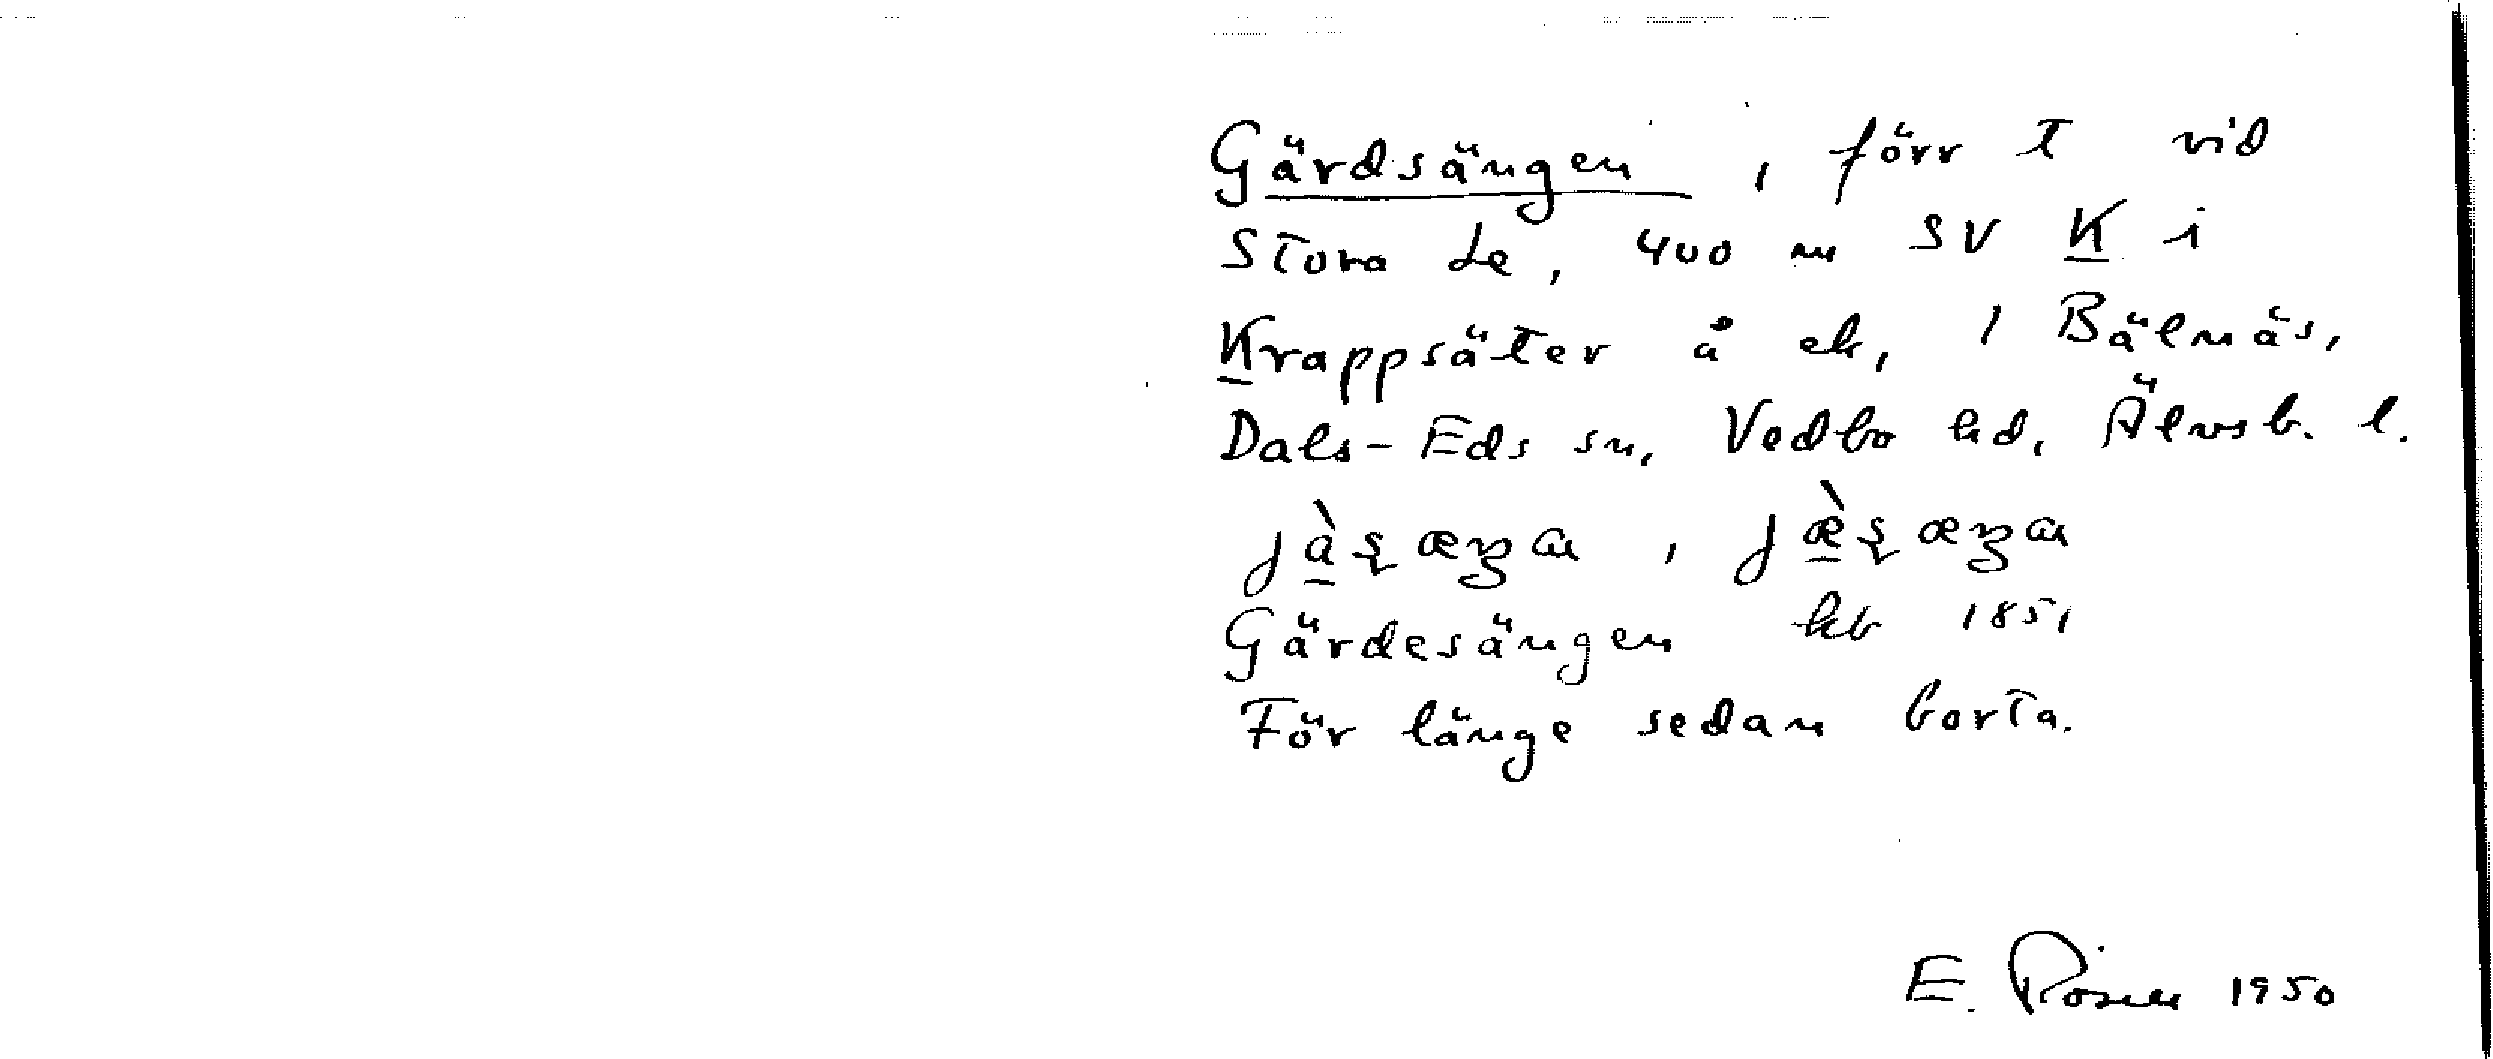 Gärdsängen, förr t vid
Stora Le, 400 m SV K i
Krappsäter å ek, 1 Bälnäs,
Dals-Eds sn, Vedbo hd, Älvsb. l.
Gärdesängen kb 1851
För länge sedan borta.
E. Rosén 1950